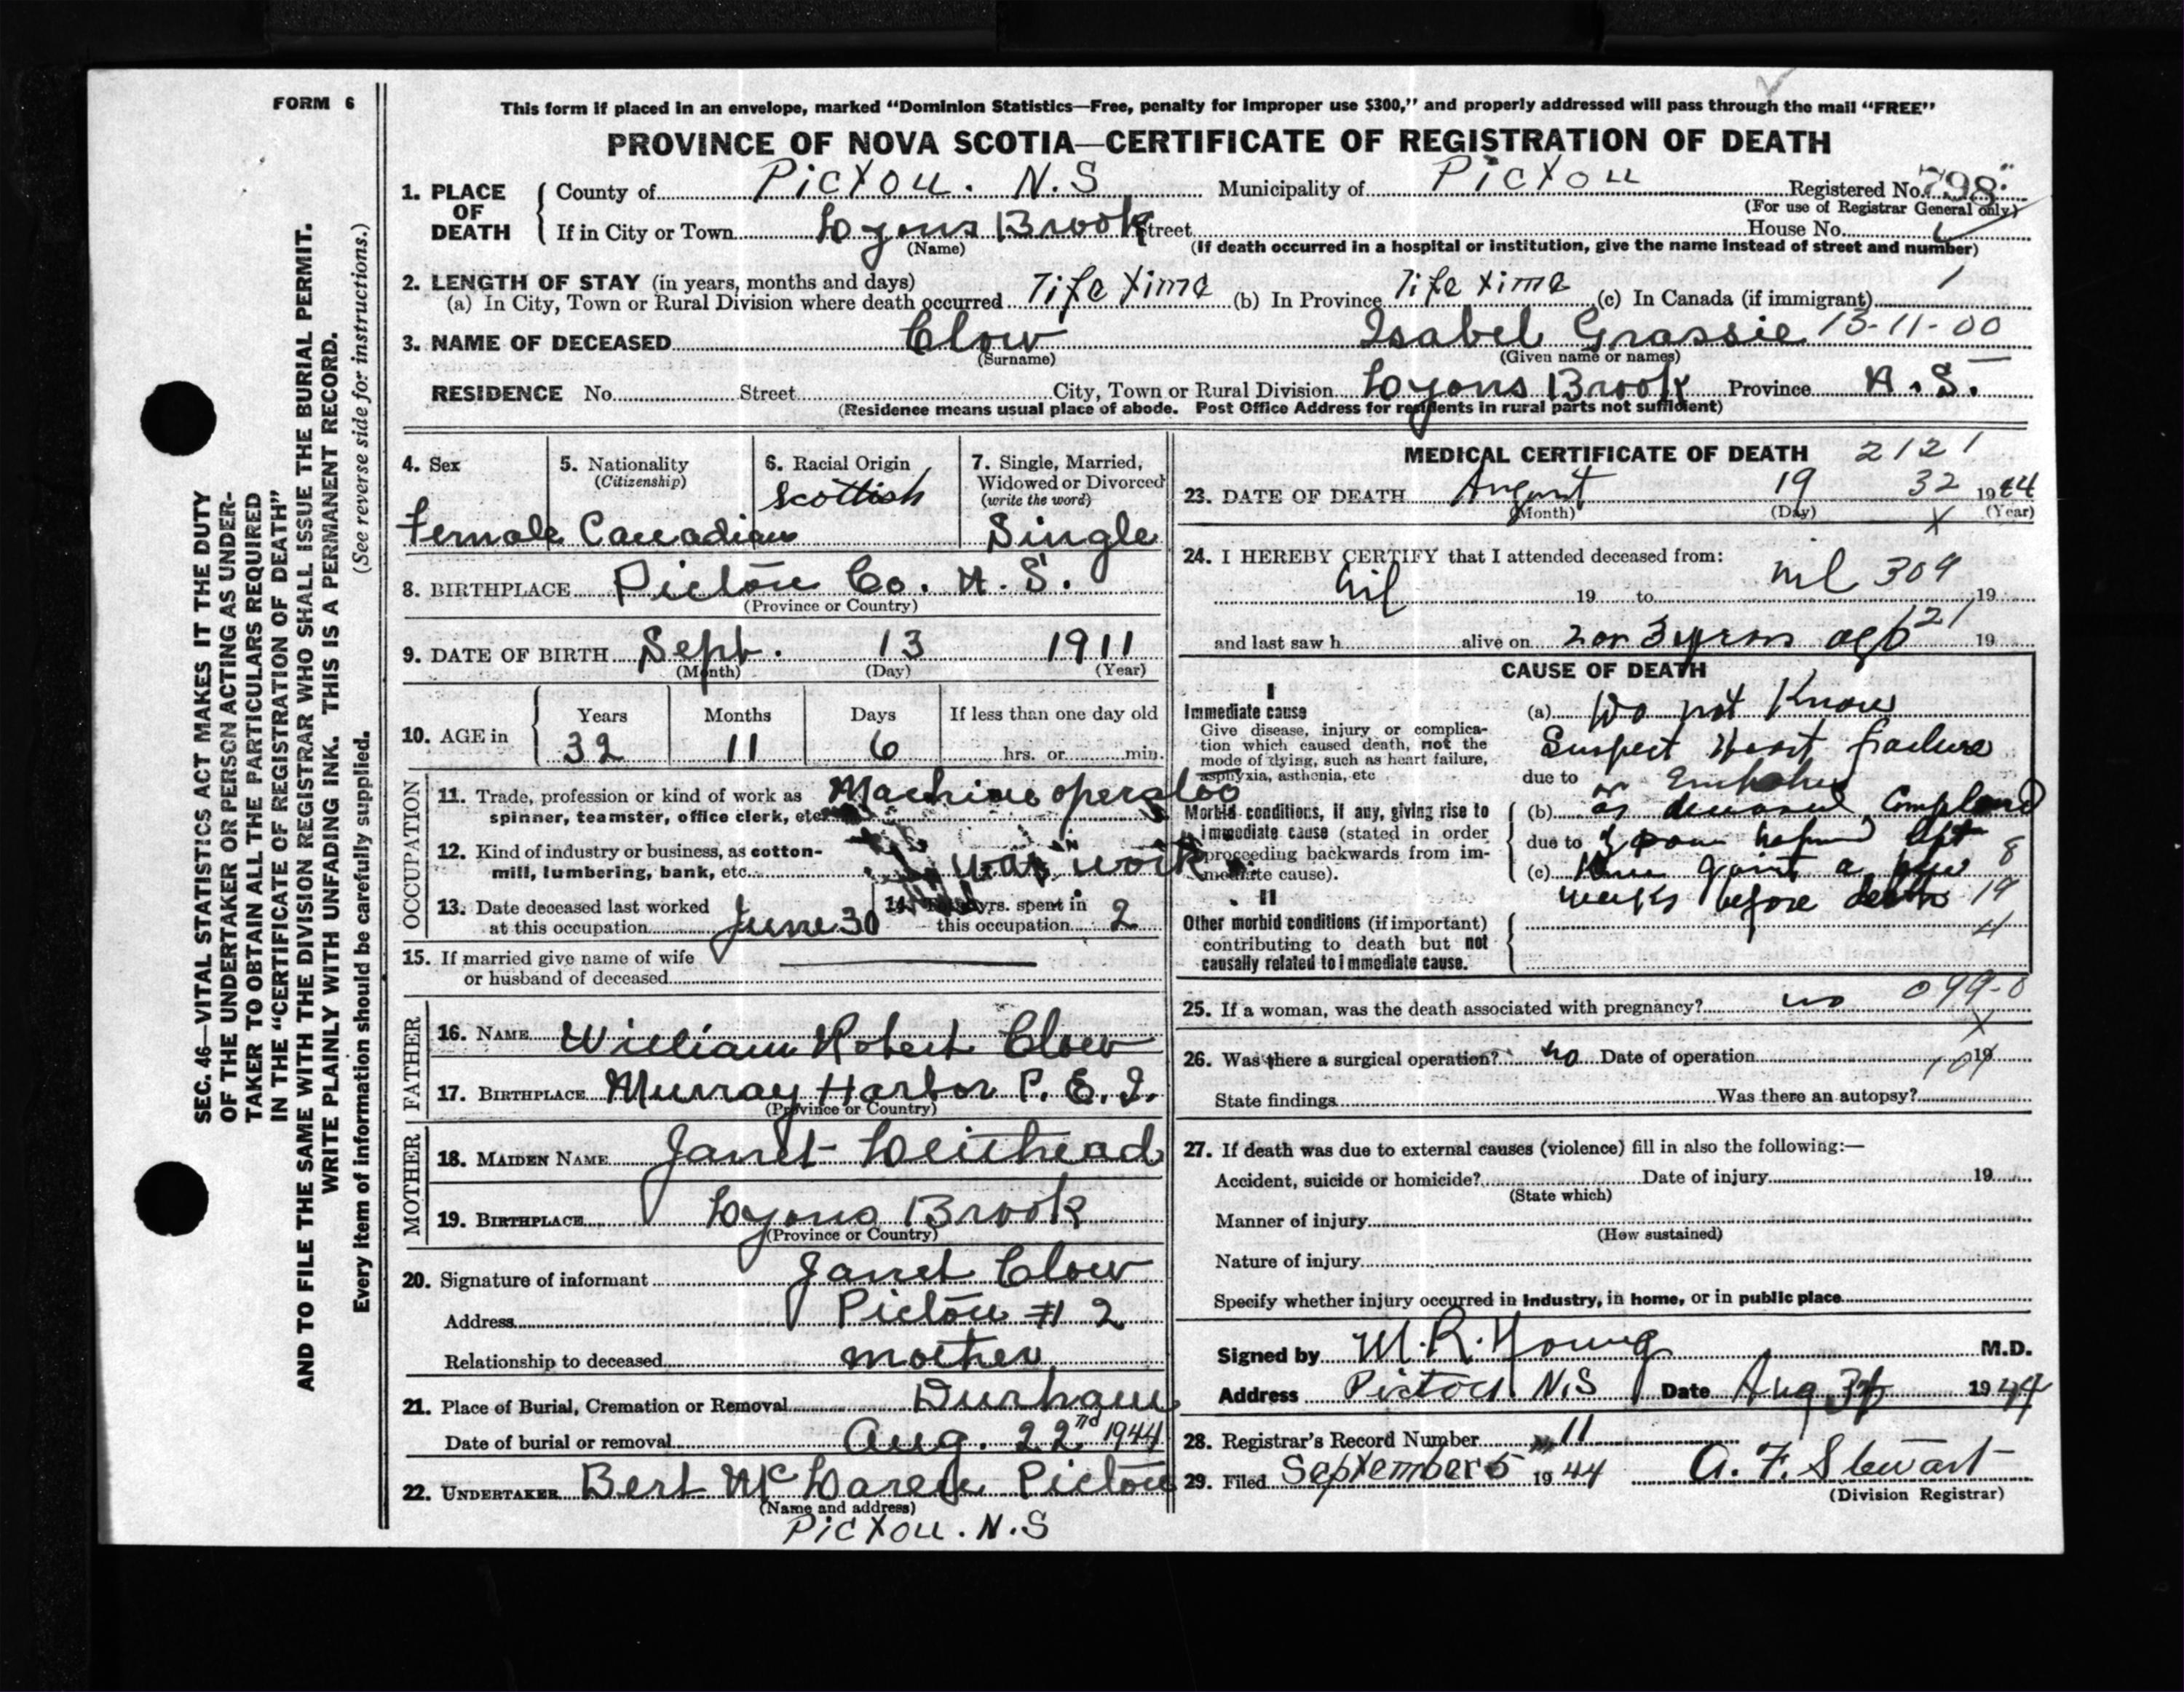 FORM 6
This form if placed in an envelope, marked “Dominion Statistics—Free, penalty for improper use $300,” and properly addressed will pass through the mail “FREE”
PROVINCE OF NOVA SCOTIA—CERTIFICATE OF REGISTRATION OF DEATH
1. PLACE OF DEATH County of Pictou. N.S Municipality of Pictou Registered No. 798
(For use of Registrar General only)
If in City or Town Lyons Brook Street House No.
(Name) (If death occurred in a hospital or institution, give the name instead of street and number)
2. LENGTH OF STAY (in years, months and days)
(a) In City, Town or Rural Division where death occurred Life time (b) In Province Life time (c) In Canada (if immigrant) 1
3. NAME OF DECEASED Clow Isabel Grassie 13-11-00
(Surname) (Given name or names)
RESIDENCE No. Street City, Town or Rural Division Lyons Brook Province N.S.
(Residence means usual place of abode. Post Office Address for residents in rural parts not sufficient)
4. Sex 5. Nationality (Citizenship) 6. Racial Origin 7. Single, Married, Widowed or Divorced (write the word)
Female Canadian Scottish Single
8. BIRTHPLACE Pictou Co. N.S.
(Province or Country)
9. DATE OF BIRTH Sept. 13 1911
(Month) (Day) (Year)
10. AGE in Years Months Days If less than one day old
32 11 6 hrs. or min.
OCCUPATION
11. Trade, profession or kind of work as spinner, teamster, office clerk, etc. Machine operator
12. Kind of industry or business, as cotton-mill, lumbering, bank, etc. war work
13. Date deceased last worked at this occupation June 30 14. Total yrs. spent in this occupation 2
15. If married give name of wife or husband of deceased
FATHER
16. NAME William Robert Clow
17. BIRTHPLACE Murray Harbor P.E.I.
(Province or Country)
MOTHER
18. MAIDEN NAME Janet Leithead
19. BIRTHPLACE Lyons Brook
(Province or Country)
20. Signature of informant Janet Clow
Address Pictou #2
Relationship to deceased mother
21. Place of Burial, Cremation or Removal Durham
Date of burial or removal Aug. 22nd 1944
22. UNDERTAKER Bert McLaren Pictou
(Name and address)
Pictou. N.S
MEDICAL CERTIFICATE OF DEATH 2121
23. DATE OF DEATH August 19 32 1944
(Month) (Day) (Year)
X
24. I HEREBY CERTIFY that I attended deceased from:
nil 19 to nil 309 19
and last saw h alive on 2 or 3 yrs ago 121 19
CAUSE OF DEATH
I
Immediate cause
Give disease, injury or complication which caused death, not the mode of dying, such as heart failure, asphyxia, asthenia, etc
(a) Do not Know
Suspect Heart failure
due to or
Morbid conditions, if any, giving rise to immediate cause (stated in order proceeding backwards from immediate cause).
(b) as deceased
due to
(c) Knee joint a few 8
weeks before death 19
II
Other morbid conditions (if important) contributing to death but not causally related to immediate cause.
4
25. If a woman, was the death associated with pregnancy? no 099-0
X
26. Was there a surgical operation? no Date of operation 19
State findings Was there an autopsy?
27. If death was due to external causes (violence) fill in also the following:—
Accident, suicide or homicide? Date of injury 19
(State which)
Manner of injury
(How sustained)
Nature of injury
Specify whether injury occurred in industry, in home, or in public place
Signed by M.R. Young M.D.
Address Pictou N.S Date Aug 1944
28. Registrar's Record Number 11
29. Filed September 5 1944 A. F. Stewart
(Division Registrar)
SEC. 46—VITAL STATISTICS ACT MAKES IT THE DUTY
OF THE UNDERTAKER OR PERSON ACTING AS UNDER-
TAKER TO OBTAIN ALL THE PARTICULARS REQUIRED
IN THE “CERTIFICATE OF REGISTRATION OF DEATH”
AND TO FILE THE SAME WITH THE DIVISION REGISTRAR WHO SHALL ISSUE THE BURIAL PERMIT.
WRITE PLAINLY WITH UNFADING INK. THIS IS A PERMANENT RECORD.
Every item of information should be carefully supplied. (See reverse side for instructions.)